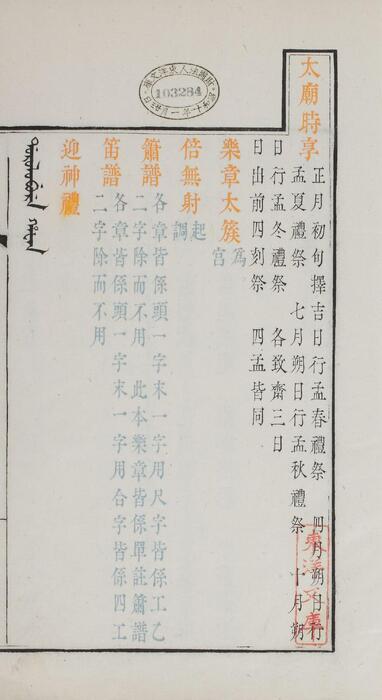 太廟時享
正月初旬擇吉日行孟春禮祭 四月朔日行
孟夏禮祭 七月朔日行孟秋禮祭 十月朔
日行孟冬禮祭 各致齋三日
日出前四刻祭 四孟皆同
樂章太簇 為宮
倍無射 起調
簫譜
各章皆係頭一字末一字用尺字皆係工乙
二字除而不用 此本樂章皆係單註簫譜
笛譜
各章皆係頭一字末一字用合字皆係四工
二字除而不用
迎神禮
財團法人東洋文庫
103284
東洋文庫